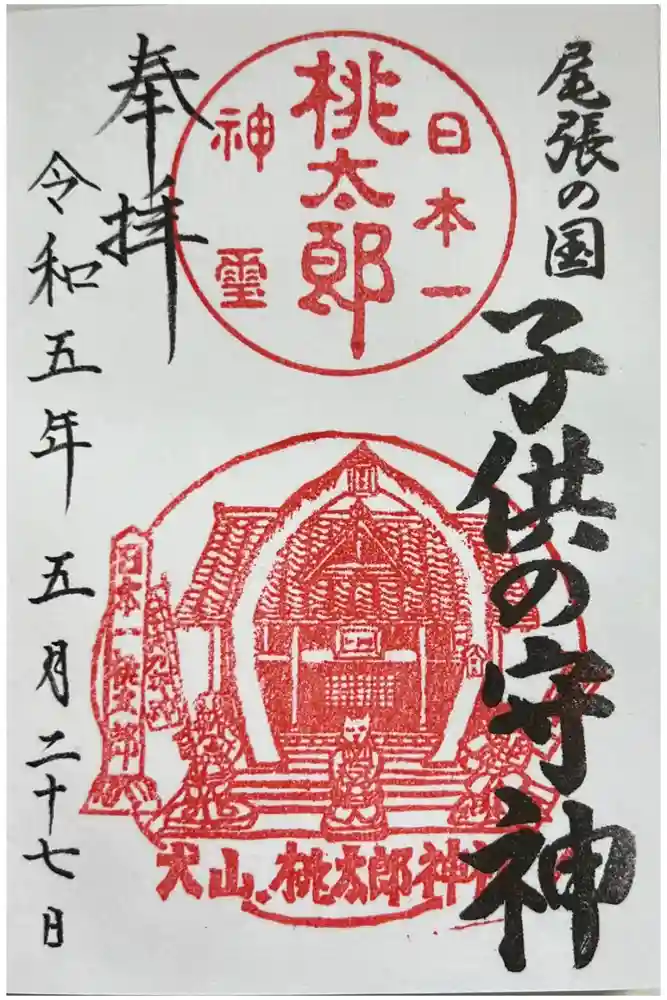 尾張の国
子供の守神
日本一
桃太郎
神霊
奉拝
令和五年 五月二十七日
日本一桃太郎
犬山、桃太郎神社